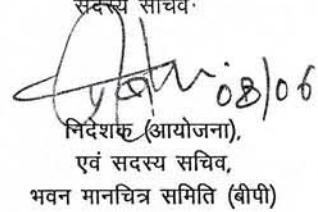 सदस्य सचिव
08/06
निदेशक (आयोजना),
एवं सदस्य सचिव,
भवन मानचित्र समिति (बीपी)